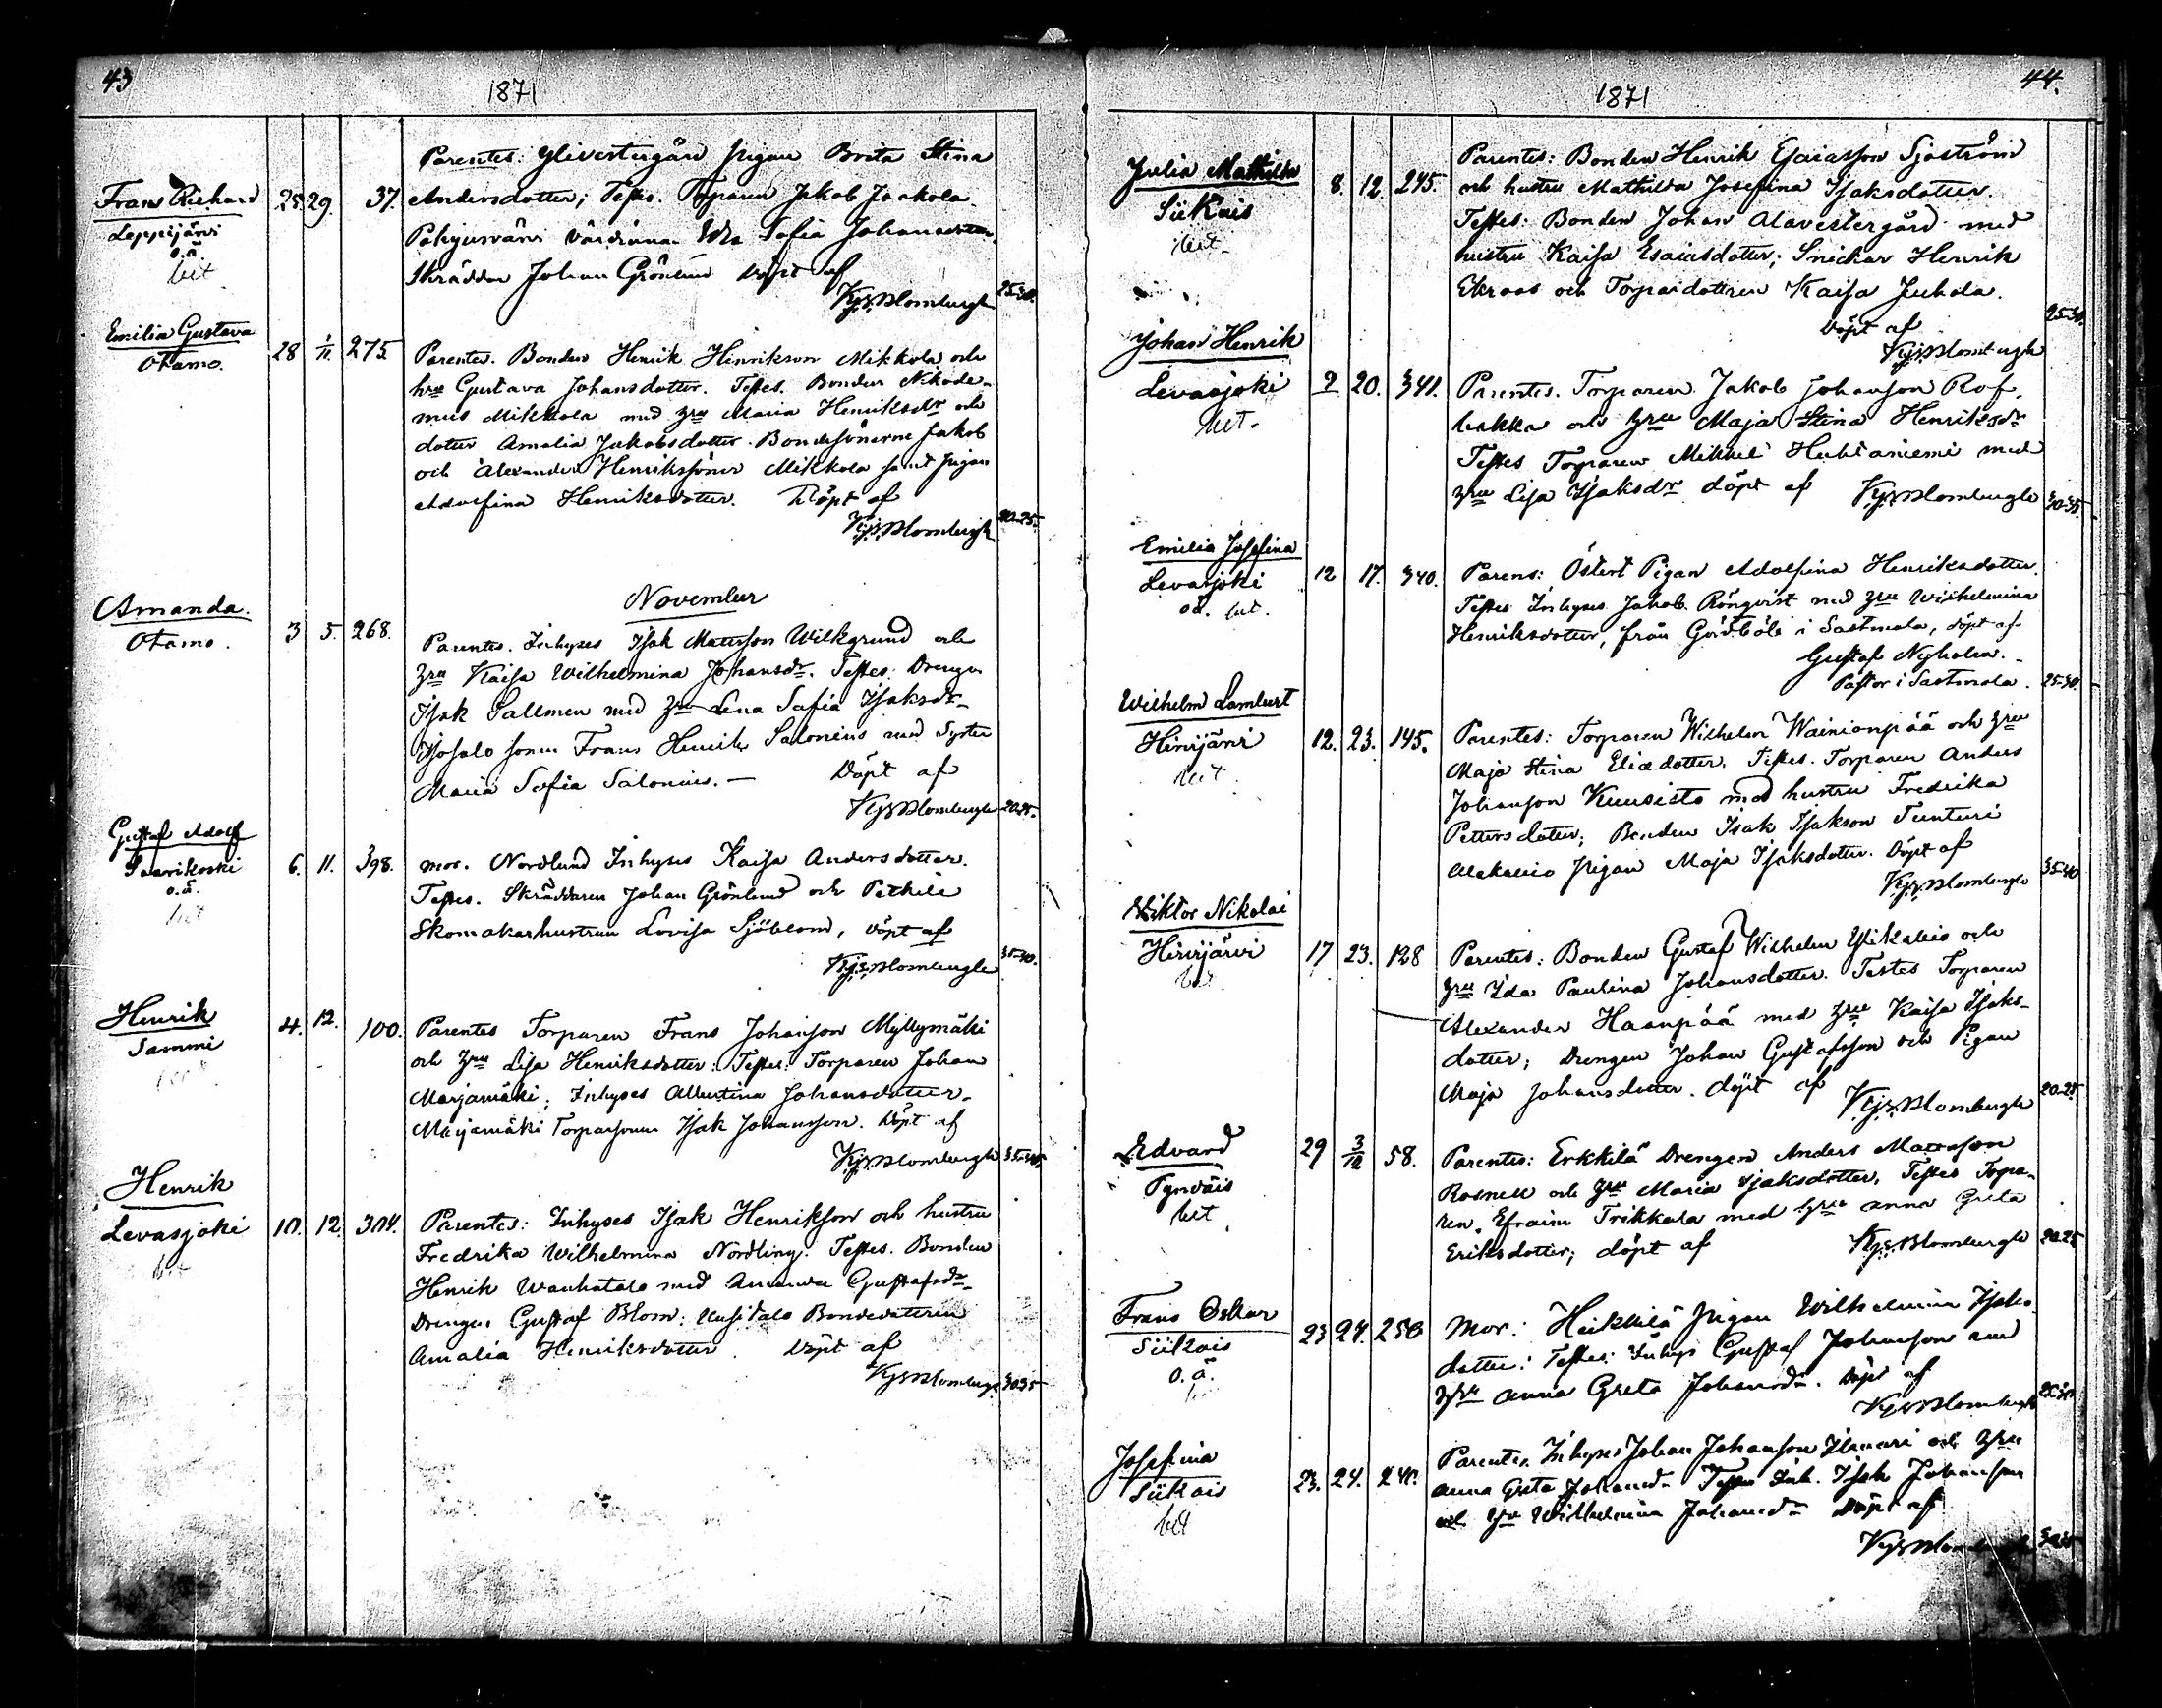 43
1871
Parentes: Ylivestergård pigan Brita Stina
Frans Richard 25. 29. 37. Andersdotter; Testes. Torparen Jakob Jaakola
Leppijärvi
o.ä.
bet
Pohjusjärvi värdinnan Ida Sofia Johansdotter
Skräddar Johan Grönlund döpt af
Kjs. Blombergh 25-30.
Emilia Gustava 28 1/11 275
Otamo.
Parentes. Bonden Henrik Henrikson Mikkola och
hru Gustava Johansdotter. Testes. Bonden Nikode-
mus Mikkola med hru Maria Henriksdr och
dotter Amalia Jakobsdotter. Bondesönerne Jakob
och Alexander Henrikssöner Mikkola samt pigan
Adolfina Henriksdotter. Döpt af
Kjs. Blombergh 20-25.
November
Amanda. 3 5. 268.
Otamo.
Parentes. Inhyses Isak Mattsson Wilkgrund och
hru Kaisa Wilhelmina Johansdr. Testes: Drengen
Isak Sallmen med hru Lena Sofia Isaksdr
sonen Frans Henrik Salonius med Syster
Maria Sofia Salonius. — Döpt af
Kjs Blombergh 20-25.
Gustaf Adolf
Saarikoski 6. 11. 398. mor. Nordlund Inhyses Kaisa Andersdotter.
o.ä.
bet
Testes. Skräddaren Johan Grönlund och
Skomakarhustrun Lovisa Sjöblom, döpt af
Kjs. Blombergh 35-40.
Henrik 4. 12. 100. Parentes Torparen Frans Johansson Myllymäki
Sammi
och hru Lisa Henriksdotter: Testes: Torparen Johan
Marjamäki; Inhyses Albertina Johansdotter.
Marjamäki Torparsonen Isak Johansson. Döpt af
Kjs Blombergh
Henrik
Levasjoki 10. 12. 304. Parentes: Inhyses Isak Henrikson och hustru
bet
Fredrika Wilhelmina Nordling. Testes. Bonden
Henrik Wanhatalo med Amanda Gustafsdr
Drengen Gustaf Blom: Uusitalo Bondedottren
Amalia Henriksdotter. Döpt af
Kjs Blombergh 30-35
44.
1871
Julia Mathilda 8. 12 245.
Siikais
bet
Parentes: Bonden Henrik Esaiasson Sjöström
och hustru Mathilda Josefina Isaksdotter.
Testes: Bonden Johan Alavestergård med
hustru Kaisa Esaiasdotter; Snickar Henrik
Ekroos och Torpardottren Kaisa Juhola.
Döpt af 25-30.
Kjs. Blombergh
Johan Henrik
Levasjoki 9 20. 341. Parentes. Torparen Jakob Johanson Rof-
bet.
bakka och hru Maja Stina Henriksdr
Testes Torparen Mikkel Huhtaniemi med
hru Lisa Isaksdr döpt af Kjs Blombergh 30-35.
Emilia Josefina
Levasjoki 12 17. 340. Parens: Östert Pigan Adolfina Henriksdotter.
oä. bet.
Testes Inhyses Jakob Rönqvist med hru Wilhelmina
Henriksdotter, från Gårdböle i Sastmola, döpt af
Gustaf Nyholm.
Pastor i Sastmola. 25-30.
Wilhelm Lambert
Hirvijärvi 12. 23. 145. Parentes: Torparen Wilhelm Wainionpää och hru
bet
Maja Stina Eliædotter. Testes. Torparen Anders
Johanson Kuusisto med hustru Fredrika
Pettersdotter; Bonden Isak Isakson Tunturi
Alakallio pigan Maja Isaksdotter. Döpt af
Kjs. Blombergh 35-40
Wiktor Nikolai
Hirvijärvi 17 23. 128 Parentes: Bonden Gustaf Wilhelm Ylikallio och
bet
hru Ida Paulina Johansdotter. Testes Torparen
Alexander Haanpää med hru Kaisa Isaks-
dotter; Drengen Johan Gustafsson och Pigan
Maja Johansdotter. döpt af
Kjs. Blombergh 20-25
Edvard 29 3/12 58. Parentes: Erkkilä Drengen Anders Mattsson
Tynväis
bet
Rosnell och hru Maria Isaksdotter, Testes Torpa-
ren Efraim Trikkala med hru Anna Greta
Eriksdotter; döpt af Kjs. Blombergh 20-25
Frans Oskar
Siikais 23 24. 250 Mor: Heikkilä pigan Wilhelmina Isaks-
o.ä.
dotter: Testes: Inhys Gustaf Johanson med
hru Anna Greta Johansdr. Döpt af
Kjs Blombergh 25-30
Josefina
Siikais 23. 24. 240. Parentes. Inhyses Johan Johanson Ilmari och hru
bet
Anna Greta Johansdr Testes Inh. Isak Johanson
och hru Wilhelmina Johansdr Döpt af
Kjs Blombergh